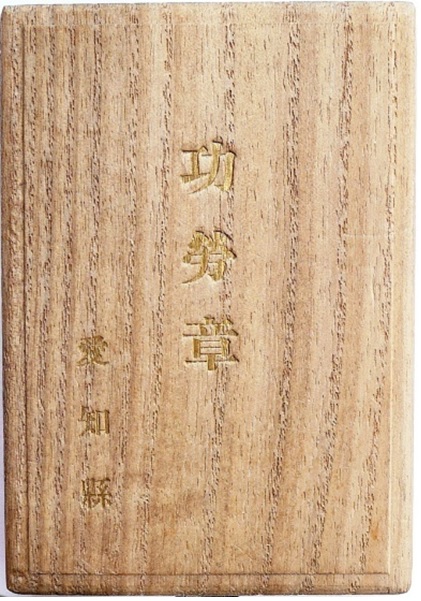 功勞章
愛知縣